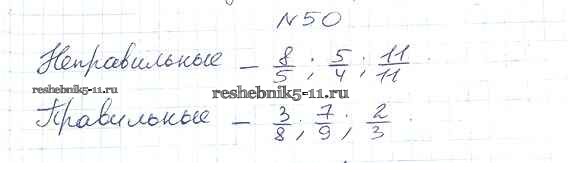 N50
Неправильные – 8/5; 5/4; 11/11
reshebnik5-11.ru
reshebnik5-11.ru
Правильные – 3/8; 7/9; 2/3